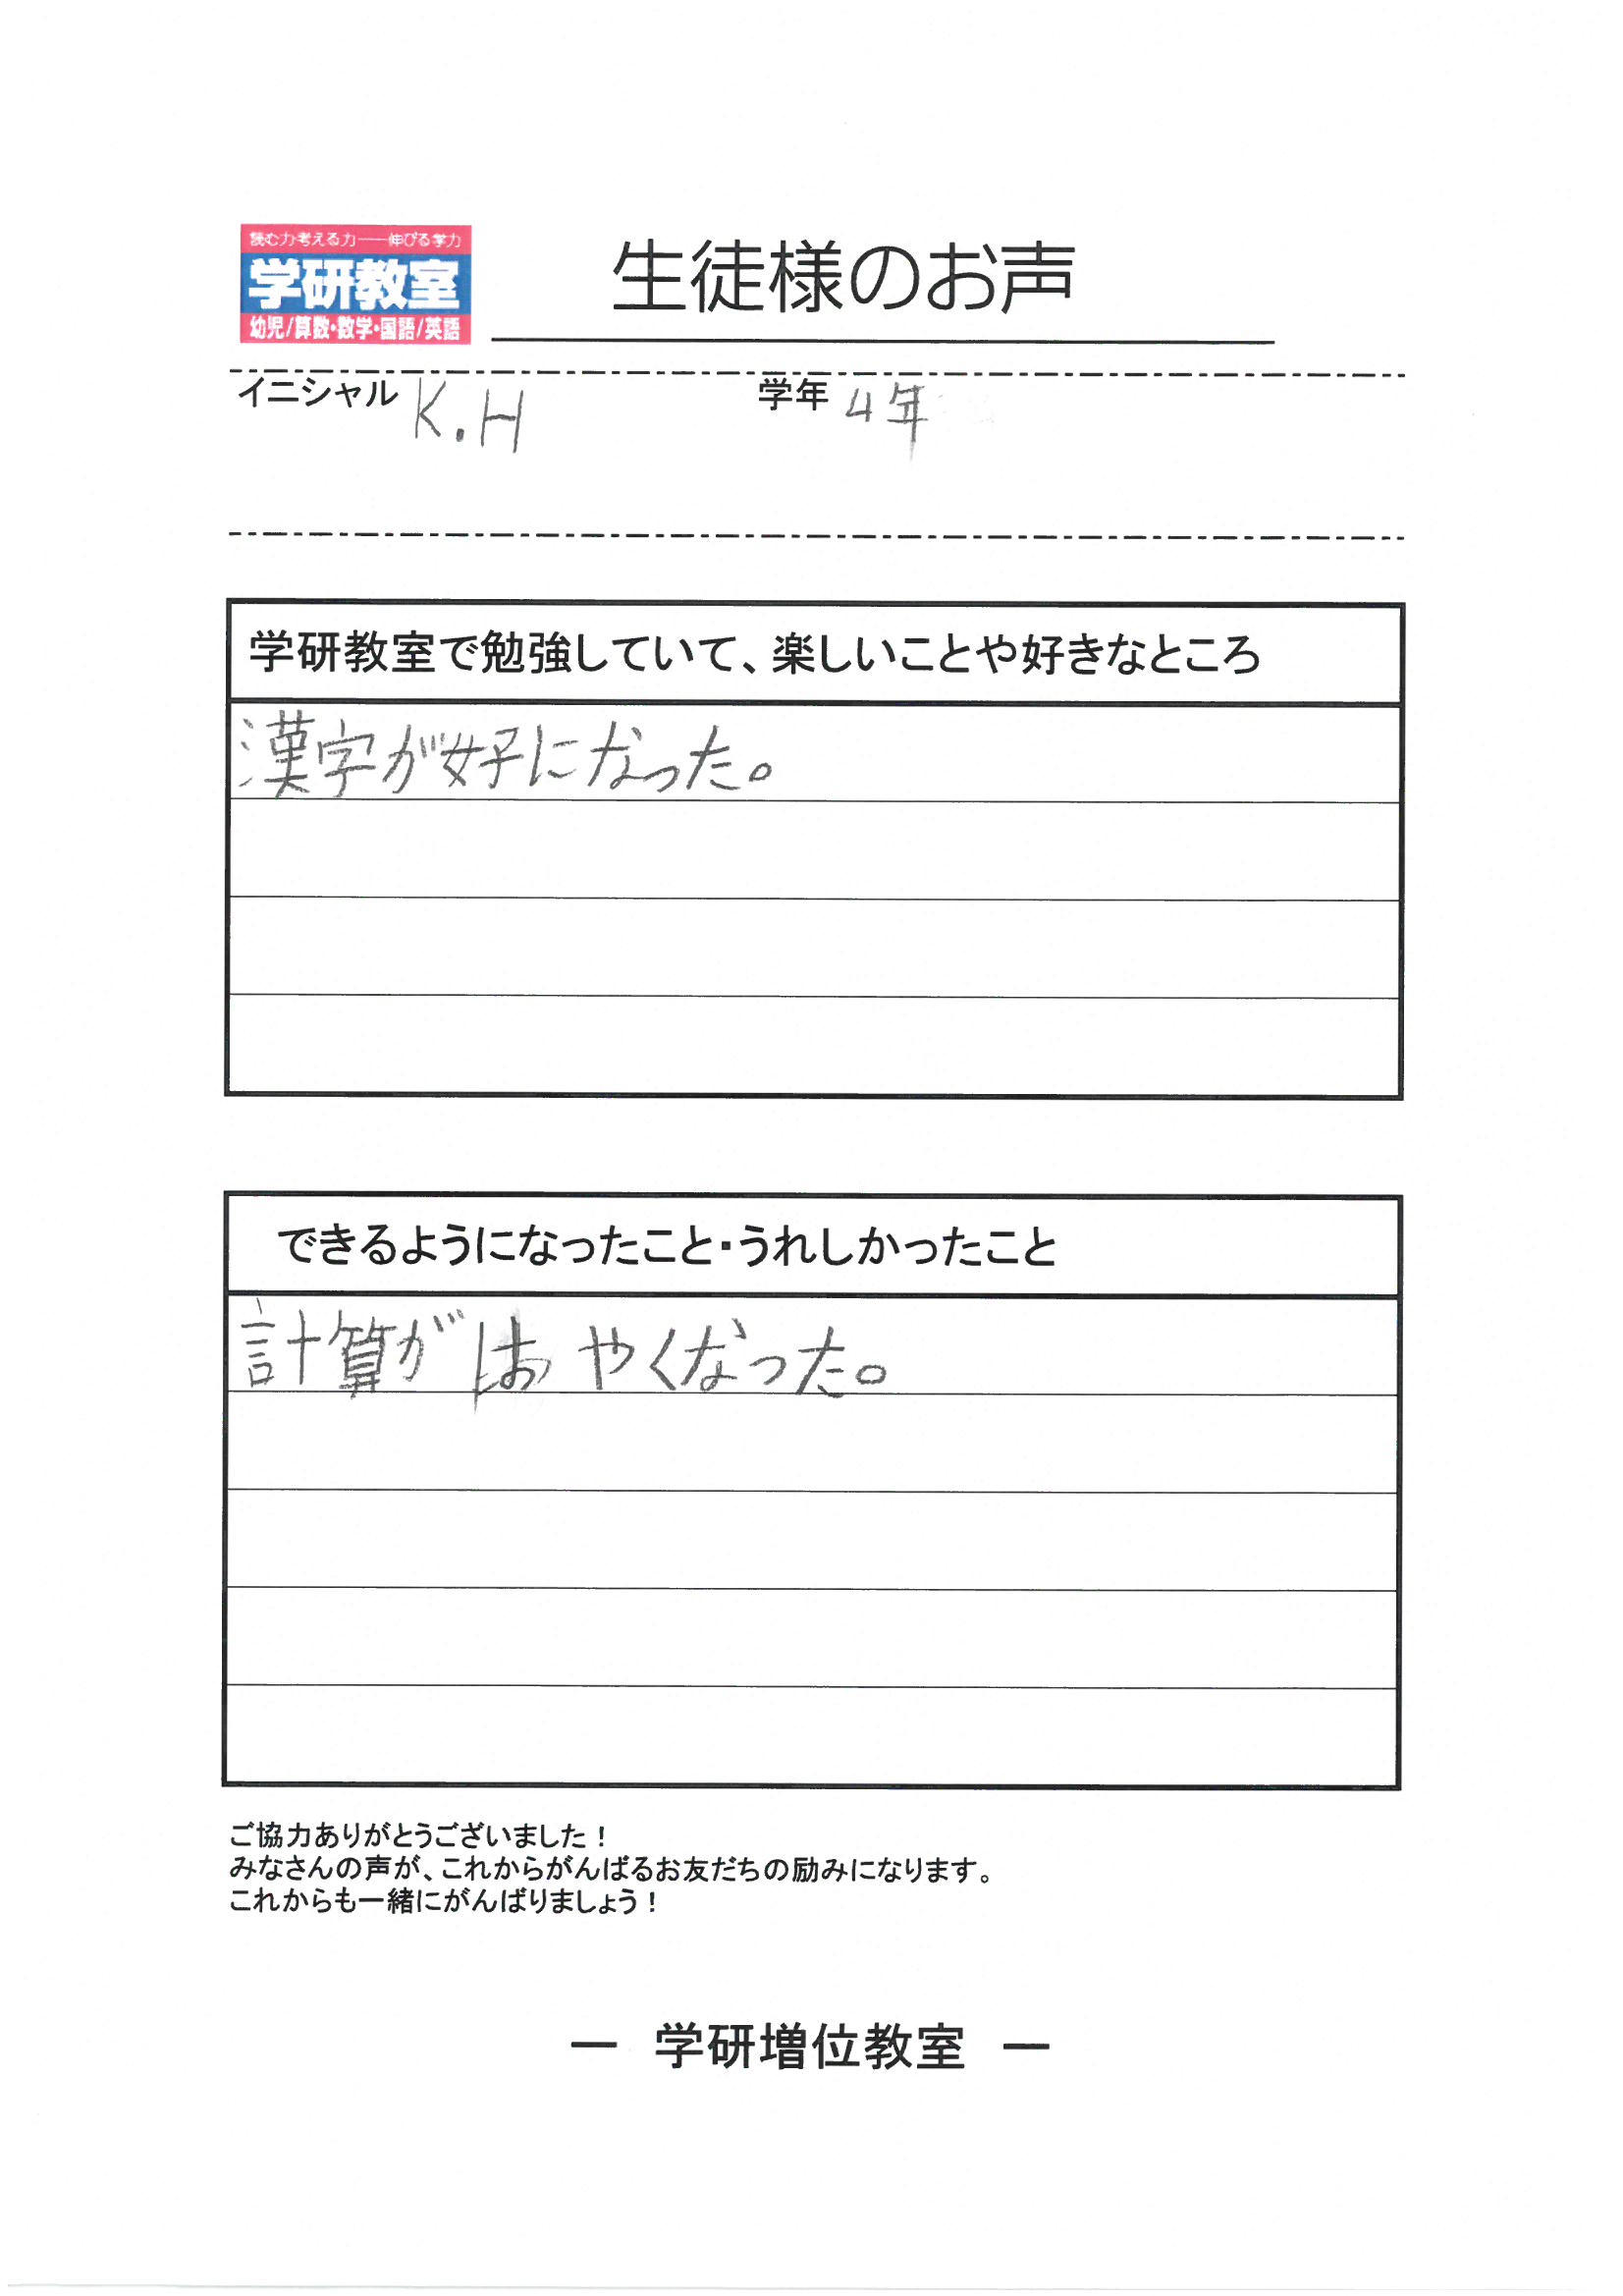 読む力考える力――伸びる学力
学研教室
幼児/算数・数学・国語/英語
生徒様のお声
イニシャル K.H 学年 4年
学研教室で勉強していて、楽しいことや好きなところ
漢字が好になった。
できるようになったこと・うれしかったこと
計算がはやくなった。
ご協力ありがとうございました！
みなさんの声が、これからがんばるお友だちの励みになります。
これからも一緒にがんばりましょう！
― 学研増位教室 ―